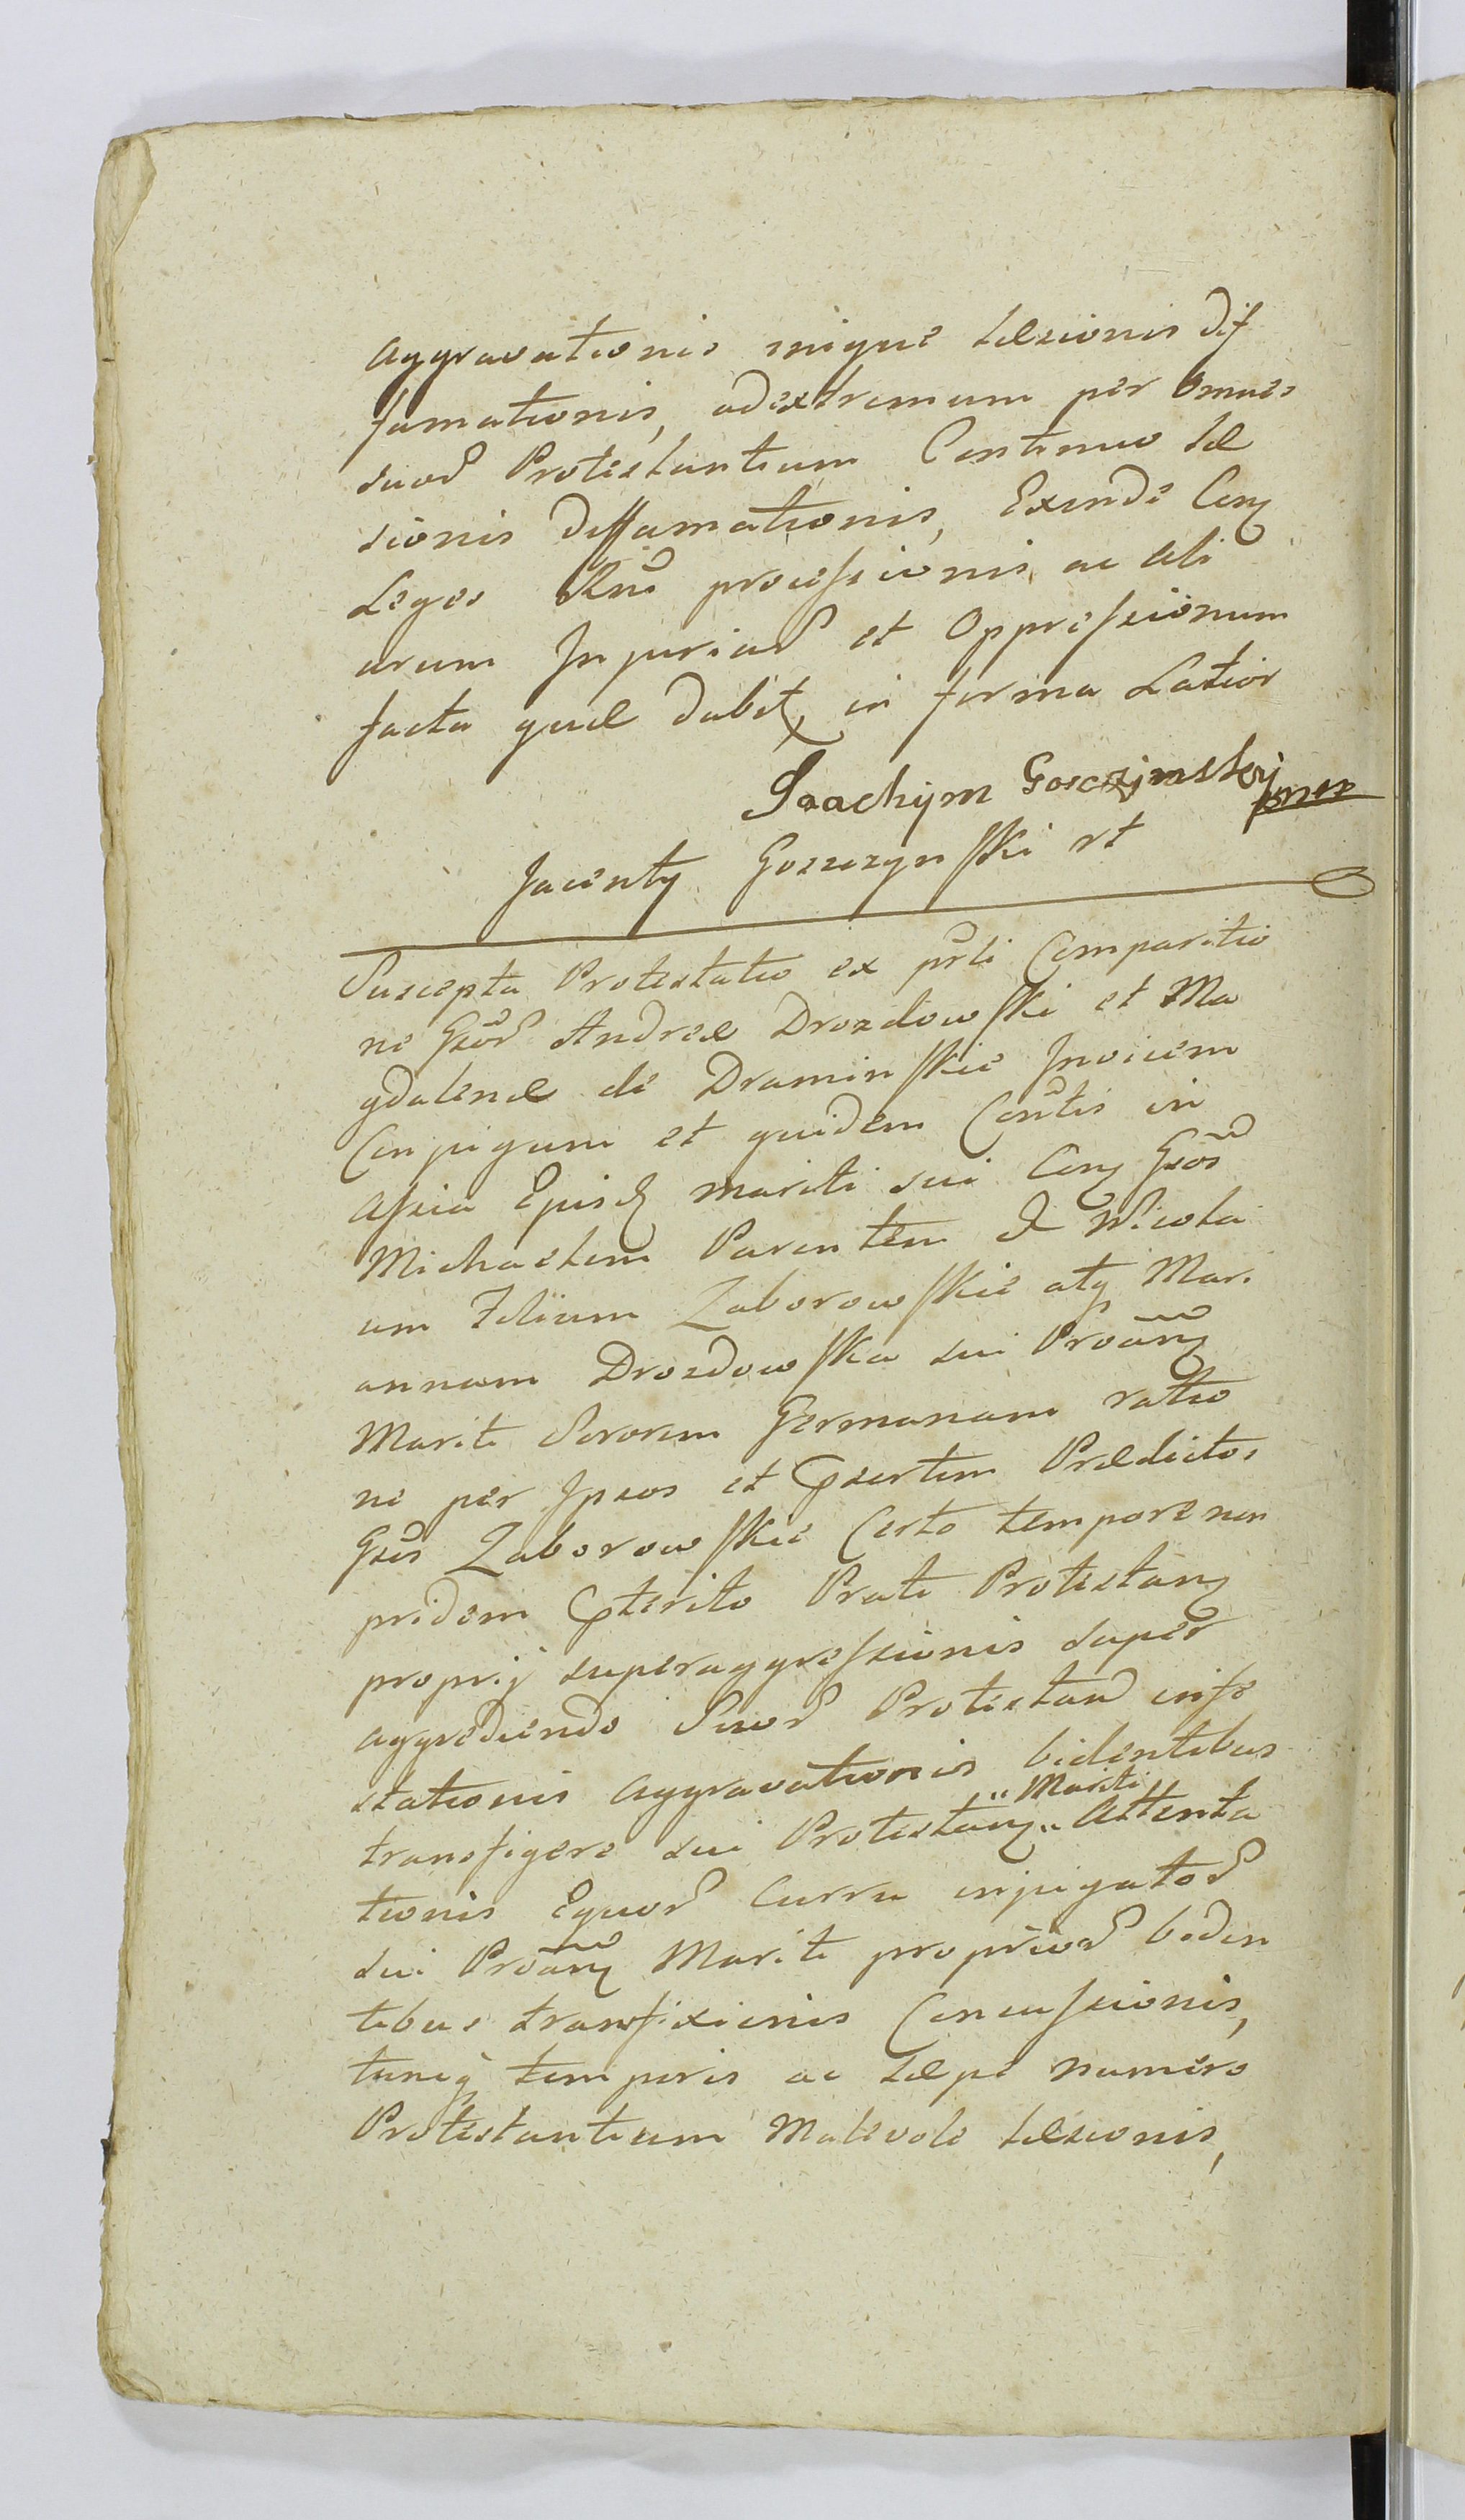 Aggravationis iniquæ Læsionis Dif
famationis, ad extremum per Omnes
suoȓ Protestantium Continuo Læ
sionis Diffamationis, Exinde Conȝ
Leges Rñi processionis ac Ali
arum Injuriaȓ et Oppressionum
facta quæ dabit, in forma Latior
Joachÿm Gosczÿnskÿ
Jacenty Goszczynski
Suscepta Protestatio ex prti Comparitio
ne Gsoȓ Andreæ Drozdowski et Ma
gdalenæ de Draminskie Invicem
Conjugum et quidem Conrtis in
Assia Ejusȝ mariti sui Conȝ Gsos
Michaelem Parentem & Nicola
um Filium Zaborowskie atq̃ Mari
annam Drozdowska sui Proãnȝ
Mariti Sororem Germanam ratio
ne per Ipsos et Psertim Prædictos
Gsos Zaborowskie Certo tempore non
pridem Pterito Prati Protestanȝ
proprij superaggressionis super
aggrediendo Suoȓ Protestanȓ infe
stationis Aggravationis bidentibus
transfigere sui Protestanȝ " Mariti " Attenta
tionis Equoȓ Curru injugatoȓ
sui Proãnȝ Mariti proprioȓ biden
tibus transfixionis Concussionis,
tuncq̃ temporis ac sæpe numero
Protestantium Malevole Læsionis,